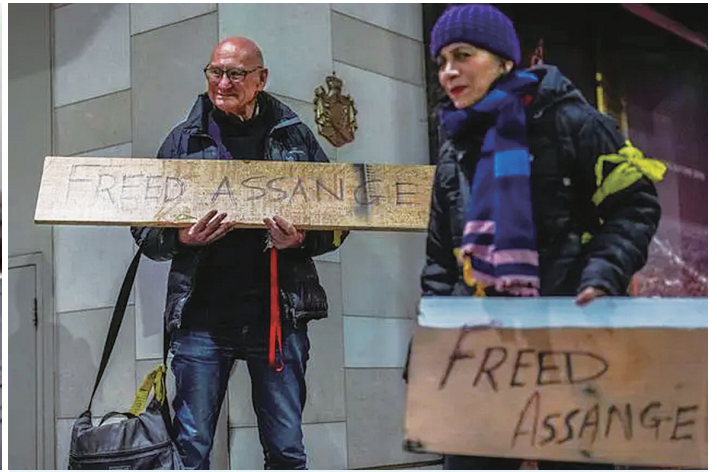 FREED ASSANGE
FREED
ASSANGE